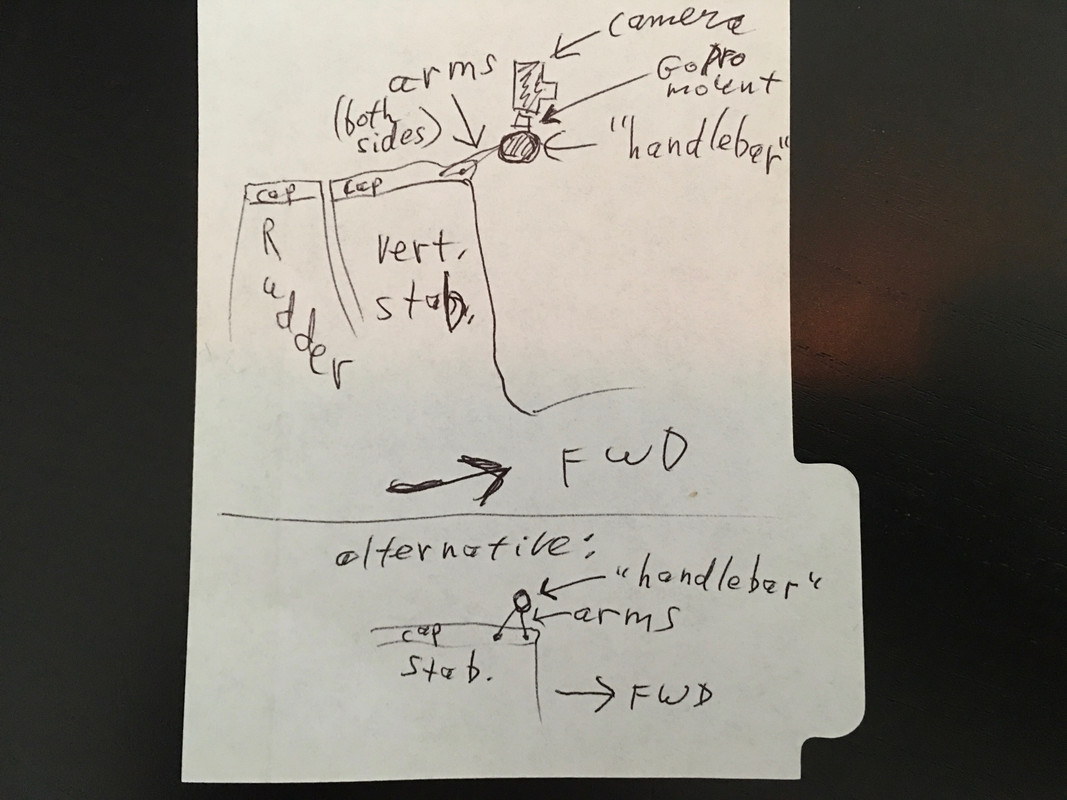 camera
GoPro
mount
arms
(both
sides)
"handlebar"
cap
cap
Rudder
vert.
stab.
FWD
alternative:
"handlebar"
arms
cap
stab.
FWD